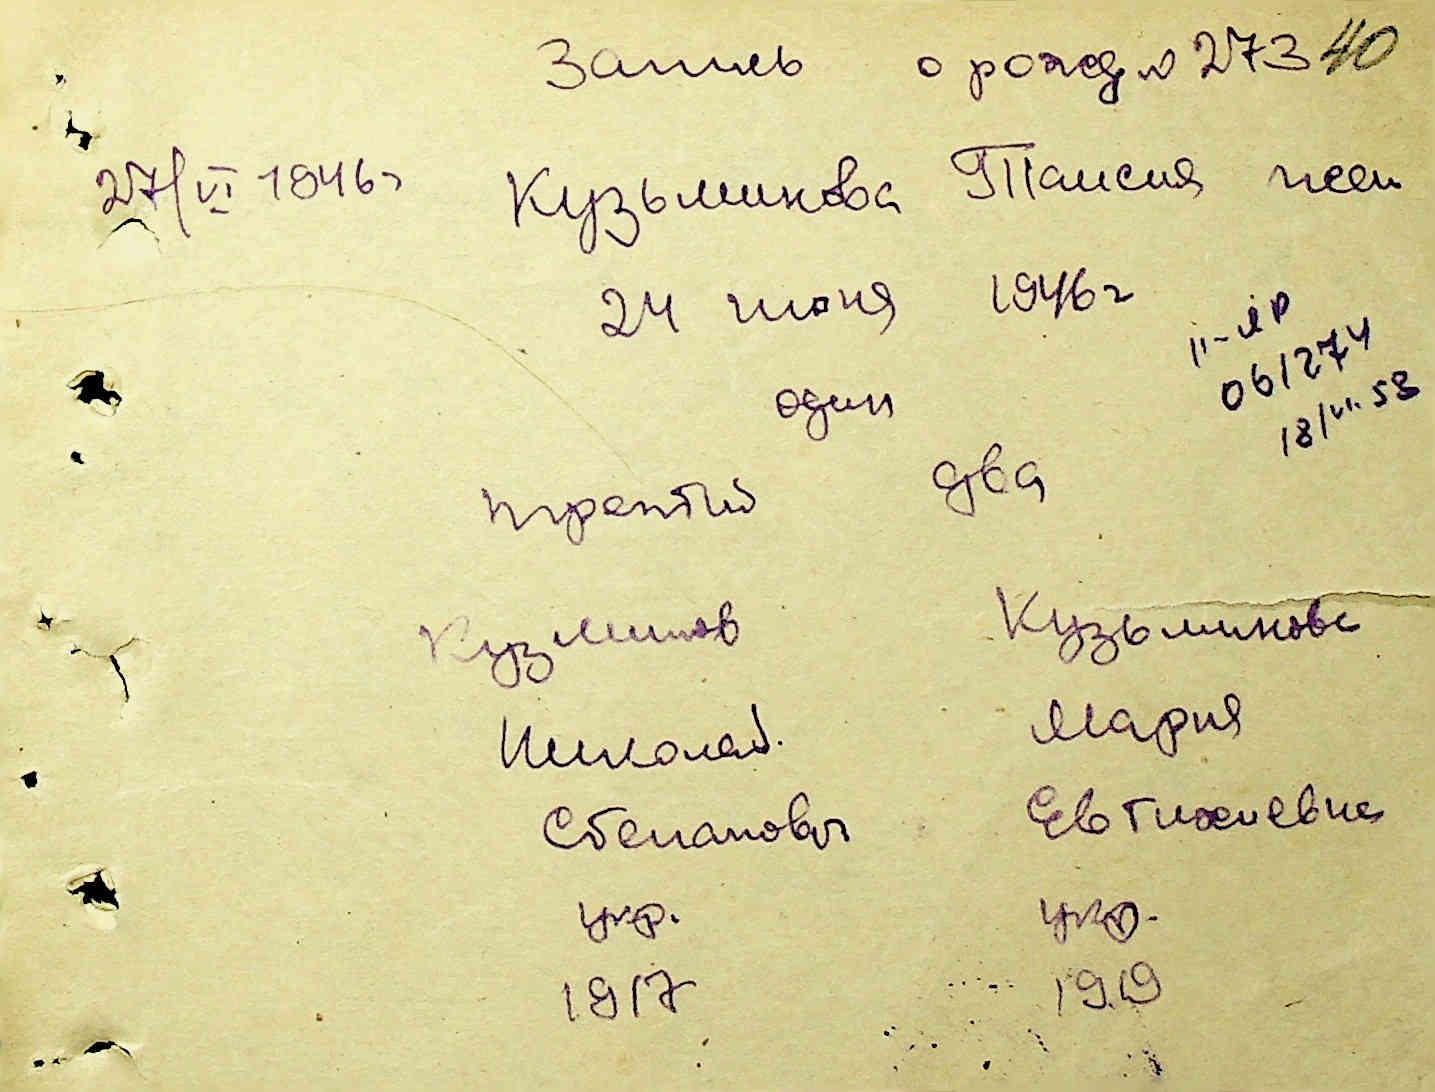 Запись о рожд № 273 40
27/VI 1946г Кузьминова Таисия жен
24 июня 1946г
II-ЯР
061274
18/VII.53
один
третий два
Кузминов Кузьминова
Николай. Мария
Степанович Евтихиевна
укр. укр.
1917 1919